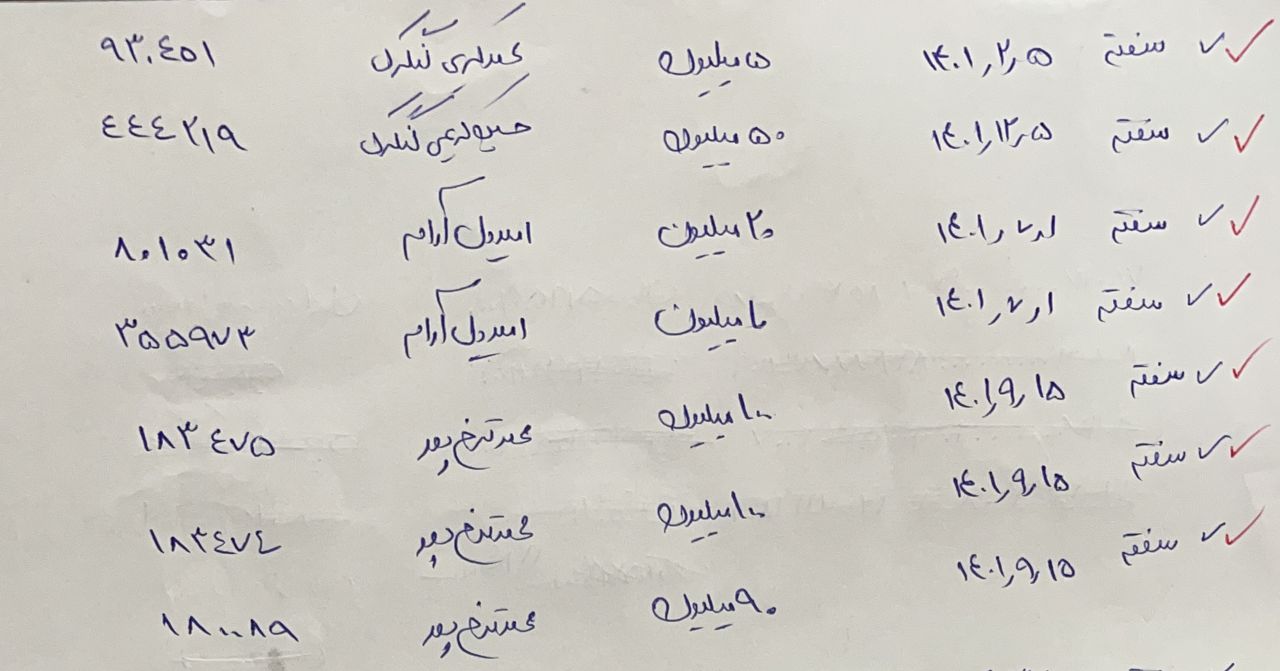 سفته ۱۴۰۱,۲,۵ ۵ میلیون گنگرل ۹۳۰۴۵۱
سفته ۱۴۰۱,۱۲,۵ ۵۰ میلیون گنگرل ۴۴۴۲۱۹
سفته ۱۴۰۱,۷,۱ ۲۰ میلیون امیدول آرام ۸۰۱۰۳۱
سفته ۱۴۰۱,۷,۱ ۱۰ میلیون امیدول آرام ۳۵۵۹۷۳
سفته ۱۴۰۱,۹,۱۵ ۱۰۰ میلیون محمد پور ۱۸۳۴۷۵
سفته ۱۴۰۱,۹,۱۵ ۱۰۰ میلیون محمد پور ۱۸۳۴۷۴
سفته ۱۴۰۱,۹,۱۵ ۹۰ میلیون محمد پور ۱۸۰۰۸۹